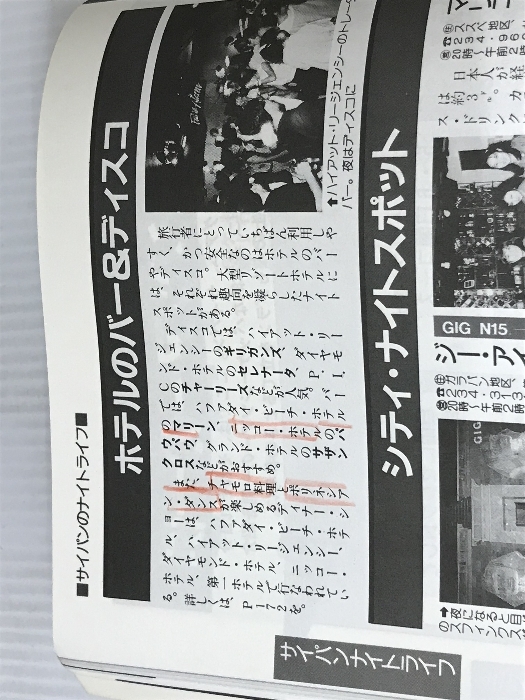 ■サイパンのナイトライフ■
ホテルのバー&ディスコ
⬆ハイアット・リージェンシーのトレー
バー。夜はディスコに
旅行者にとっていちばん利用しや
すく、かつ安全なのはホテルのバー
やディスコ。大型リゾートホテルに
は、それぞれ趣向を凝らしたナイト
スポットがある。
ディスコでは、ハイアット・リー
ジェンシーのギーガンズ、ダイヤモ
ンド・ホテルのゼノータ、P.I.
Cのチャーリーズなどが人気。バー
では、ハファダイ・ビーチ・ホテル
のマリーン、ニッコー・ホテルのバ
ウバウ、グランド・ホテルのサザン
クロスなどがおすすめ。
また、チャモロ料理とポリネシア
ン・ダンスが楽しめるディナー・シ
ョーは、ハファダイ・ビーチ・ホテ
ル、ハイアット・リージェンシー、
ダイヤモンド・ホテル、ニッコー・
ホテル、第一ホテルで行なわれてい
る。詳しくは、P172を。
シティ・ナイトスポット
㊟ススペ地区、
☎234-96
20時〜午前2時
日本人が経
は約3
ス・ドリンク
GIG N15
ジー・ア
ガラパン地区、
☎234-313
20時〜午前2
➡夜になると目
のスフィンクス
サイパンナイトライフ